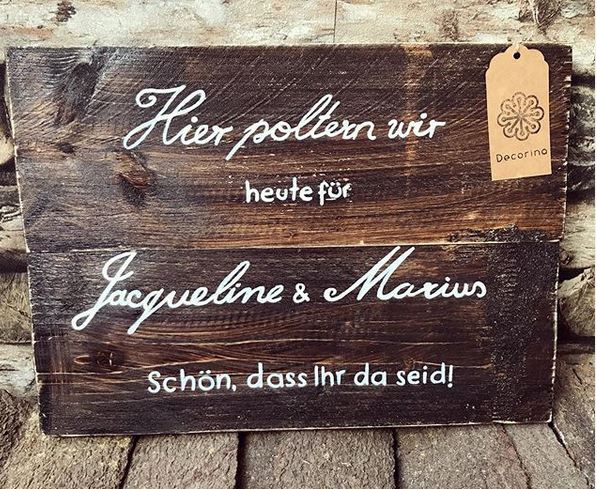 Hier poltern wir
heute für
Jacqueline & Marius
Schön, dass Ihr da seid!
Decorino